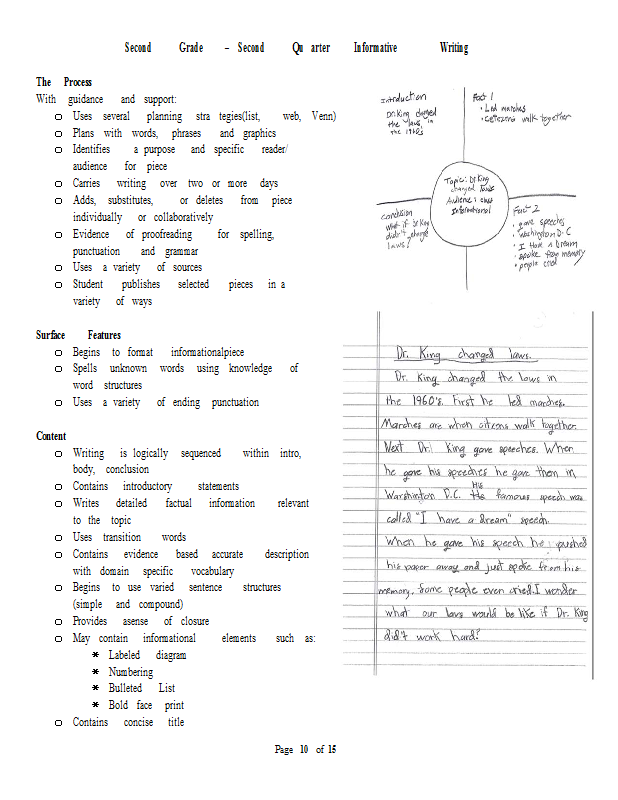 Second Grade – Second Qu arter Informative Writing
The Process
With guidance and support:
o Uses several planning stra tegies(list, web, Venn)
o Plans with words, phrases and graphics
o Identifies a purpose and specific reader/
audience for piece
o Carries writing over two or more days
o Adds, substitutes, or deletes from piece
individually or collaboratively
o Evidence of proofreading for spelling,
punctuation and grammar
o Uses a variety of sources
o Student publishes selected pieces in a
variety of ways
Surface Features
o Begins to format informationalpiece
o Spells unknown words using knowledge of
word structures
o Uses a variety of ending punctuation
Content
o Writing is logically sequenced within intro,
body, conclusion
o Contains introductory statements
o Writes detailed factual information relevant
to the topic
o Uses transition words
o Contains evidence based accurate description
with domain specific vocabulary
o Begins to use varied sentence structures
(simple and compound)
o Provides asense of closure
o May contain informational elements such as:
* Labeled diagram
* Numbering
* Bulleted List
* Bold face print
o Contains concise title
Introduction
Dr.King changed
the laws in
the 1960s
Fact 1
• Led marches
• citizens walk together
Topic: Dr King
changed laws
Audience: class
Informational
conclusion
what if Dr King
didn't change
laws?
Fact 2
• gave speeches
• Washington D.C
• I Have a Dream
• spoke from memory
• people cried
Dr. King changed laws.
Dr. King changed the laws in
the 1960's. First he led marches.
Marches are when citizens walk together.
Next Dr. King gave speeches. When
he gave his speeches he gave them in
Warshington D.C. His famous speech was
called "I have a dream" speech.
When he gave his speech he pushed
his paper away and just spoke from his
memory. Some people even cried. I wonder
what our laws would be like if Dr. King
didn't work hard?
Page 10 of 15